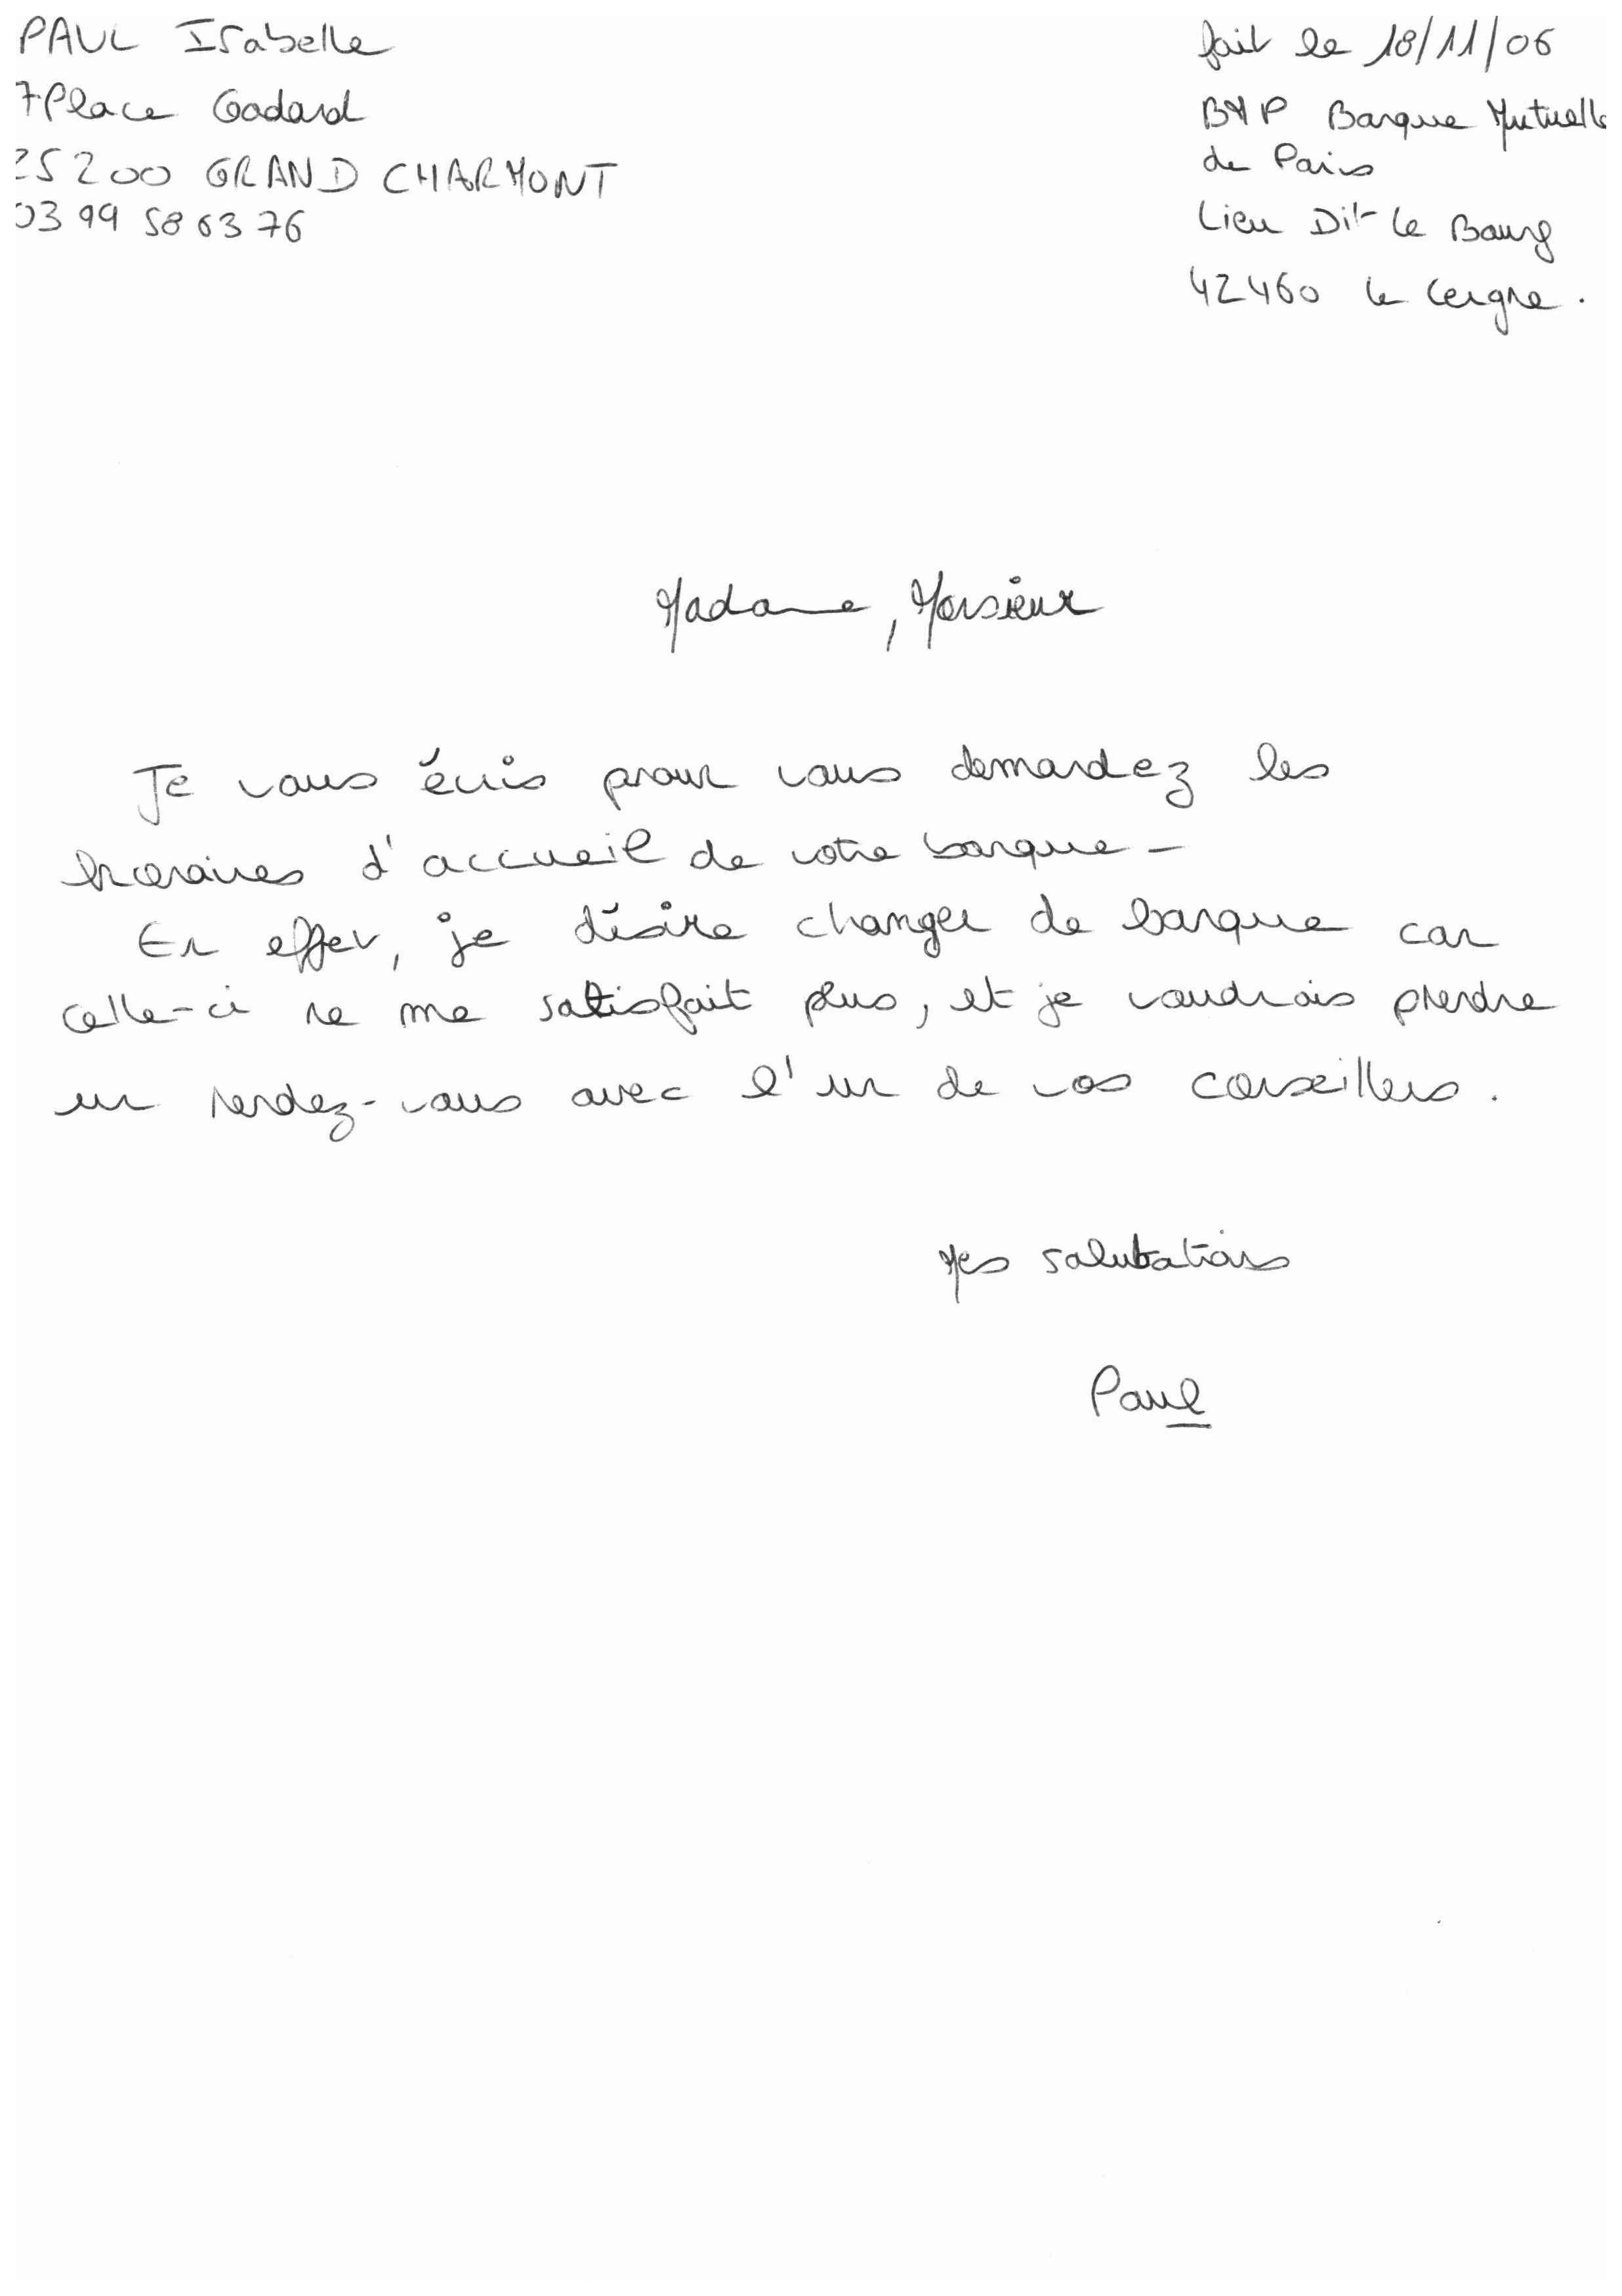 PAUL Isabelle
7 Place Godard
25200 GRAND CHARMONT
03 99 58 63 76
fait le 18/11/06
BMP Banque Mutuelle
de Paris
Lieu Dit le Bourg
42460 le Cergne.
Madame, Monsieur
Je vous écris pour vous demandez les
horaires d'accueil de votre banque -
En effet, je désire changer de banque car
celle-ci ne me satisfait plus, et je voudrais prendre
un rendez-vous avec l'un de vos conseillers.
Mes salutations
Paul